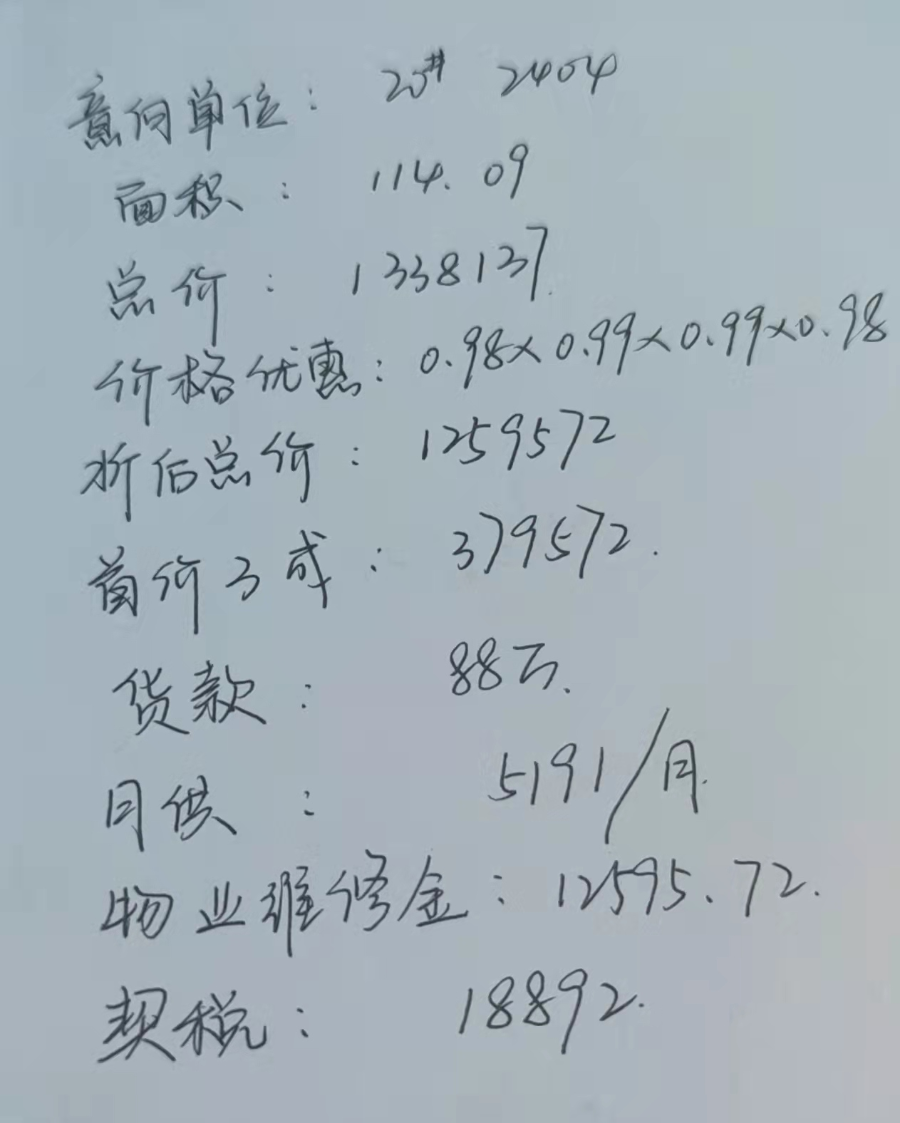 意向单位: 20# 2404
面积: 114.09
总价: 1338137.
价格优惠: 0.98×0.99×0.99×0.98
折后总价: 1259572
首付3成: 379572.
贷款: 88万.
月供: 5191/月.
物业维修金: 12595.72.
契税: 18892.